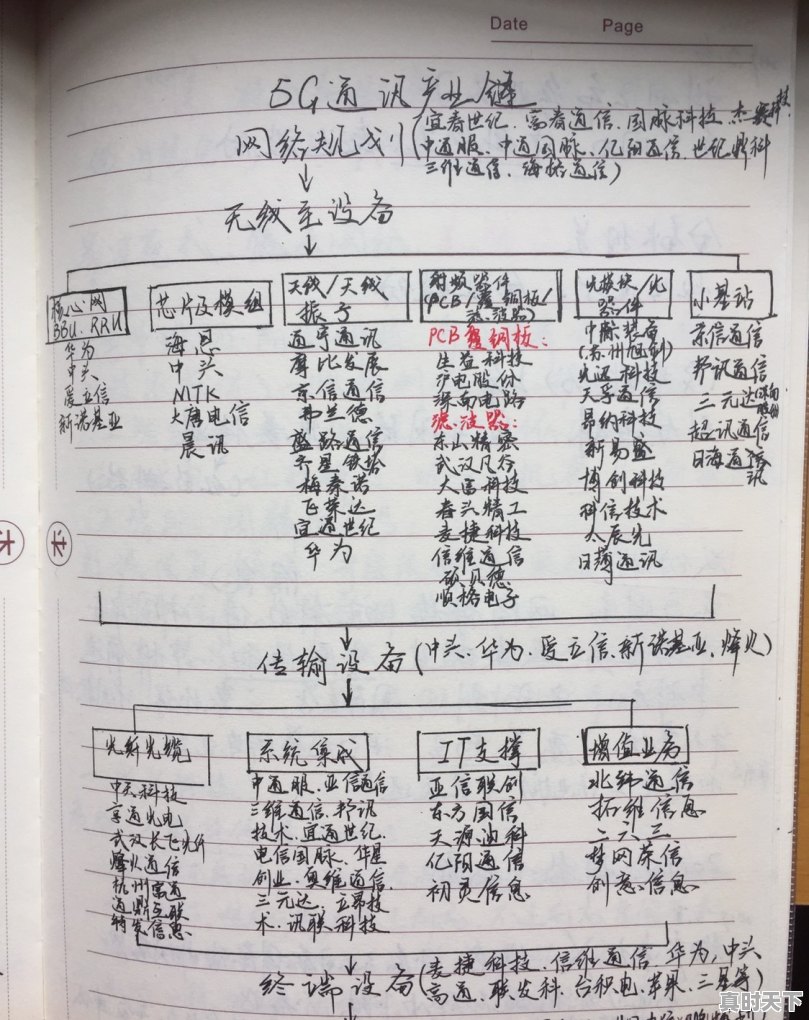 Date Page
5G通讯产业链
网络规划(宜春世纪、富春通信、国脉科技、杰赛科技
中通服、中通国脉、亿阳通信、世纪鼎科
三维通信、海格通信)
无线主设备
核心网
BBU、RRU
华为
中兴
爱立信
新诺基亚
芯片及模组
海思
中兴
MTK
大唐电信
展讯
天线/天线
振子
通宇通讯
摩比发展
京信通信
弗兰德
盛路通信
齐星铁塔
梅泰诺
飞荣达
宜通世纪
华为
射频器件
(PCB/覆铜板/
滤波器)
PCB覆铜板:
生益科技
沪电股份
深南电路
滤波器:
东山精密
武汉凡谷
大富科技
春兴精工
麦捷科技
信维通信
硕贝德
顺络电子
光模块/光
器件
中际装备
(苏州旭创)
光迅科技
天孚通信
昂纳科技
新易盛
博创科技
科信技术
太辰光
日海通讯
小基站
京信通信
邦讯通信
三元达
超讯通信
日海通讯
传输设备(中兴、华为、爱立信、新诺基亚、烽火)
光纤光缆
中天科技
亨通光电
武汉长飞光纤
烽火通信
杭州富通
通鼎互联
特发信息
系统集成
中通服、亚信通信
三维通信、邦讯
技术、宜通世纪、
电信国脉、华星
创业、奥维通信、
三元达、立昂技
术、讯联科技
IT支撑
亚信联创
东方国信
天源迪科
亿阳通信
初灵信息
增值业务
北纬通信
拓维信息
二六三
梦网荣信
创意信息
终端设备(麦捷科技、信维通信 华为,中兴
高通、联发科、台积电、苹果、三星等)
真时天下